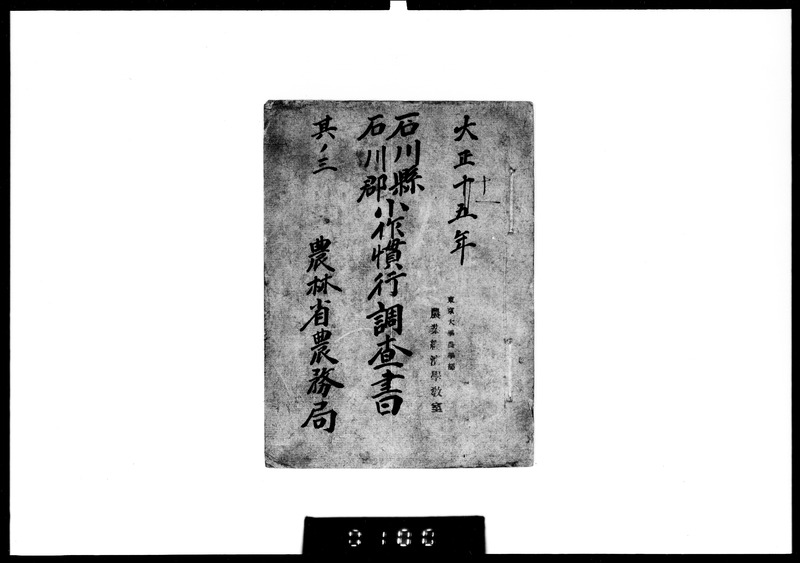 大正十五年
十一
東京大學農學部
農業經濟學教室
石川縣
石川郡
小作慣行調査書
其ノ三
農林省農務局
0100